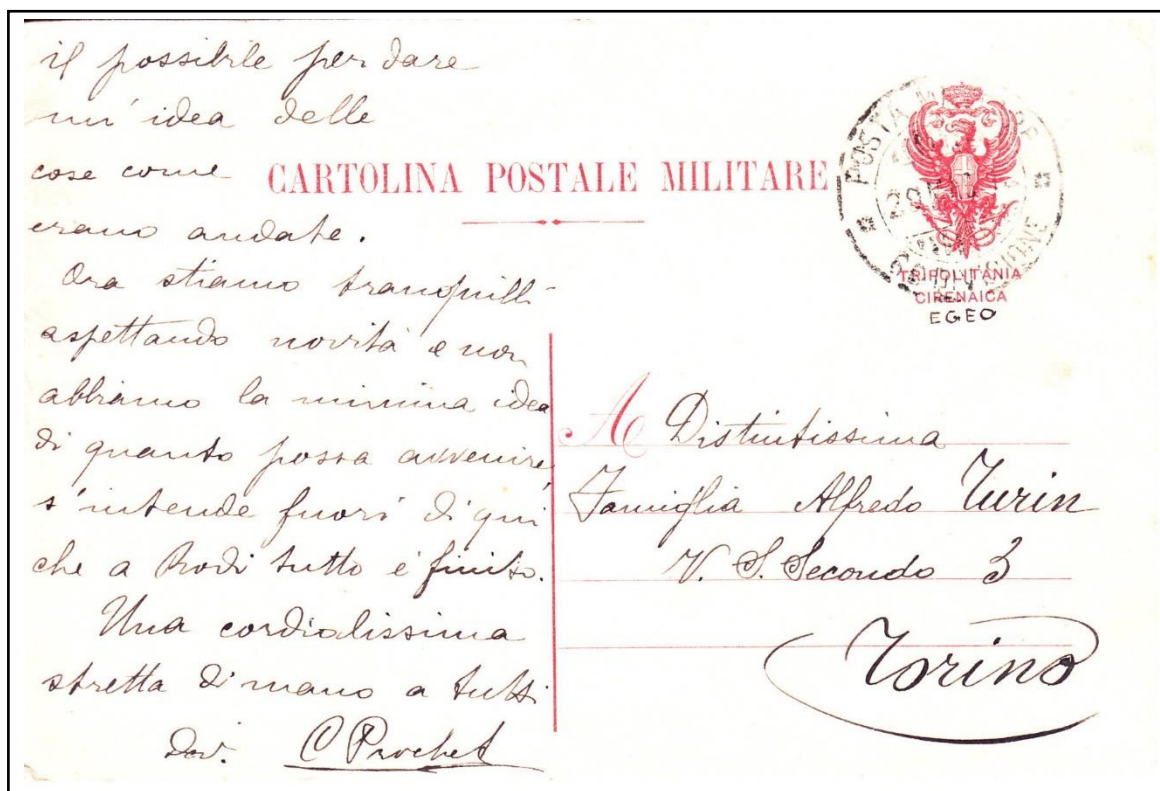 il possibile per dare
un'idea delle
cose come
erano andate.
Ora stiamo tranquilli
aspettando novità e non
abbiamo la minima idea
di quanto possa avvenire,
s'intende fuori di qui
che a Rodi tutto è finito.
Una cordialissima
stretta di mano a tutti
Dev. C Prochet
CARTOLINA POSTALE MILITARE
POSTA MILITARE
TRIPOLITANIA
CIRENAICA
EGEO
A Distintissima
Famiglia Alfredo Turin
V. S. Secondo 3
Torino